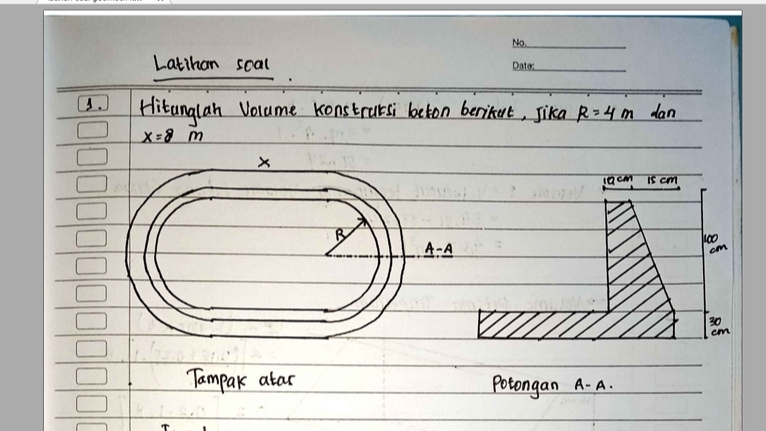 No.
Date:
Latihan soal
1. Hitunglah Volume konstruksi beton berikut, jika R = 4 m dan
x = 8 m
x
R
A-A
10 cm 15 cm
100 cm
30 cm
Tampak atas
Potongan A-A.